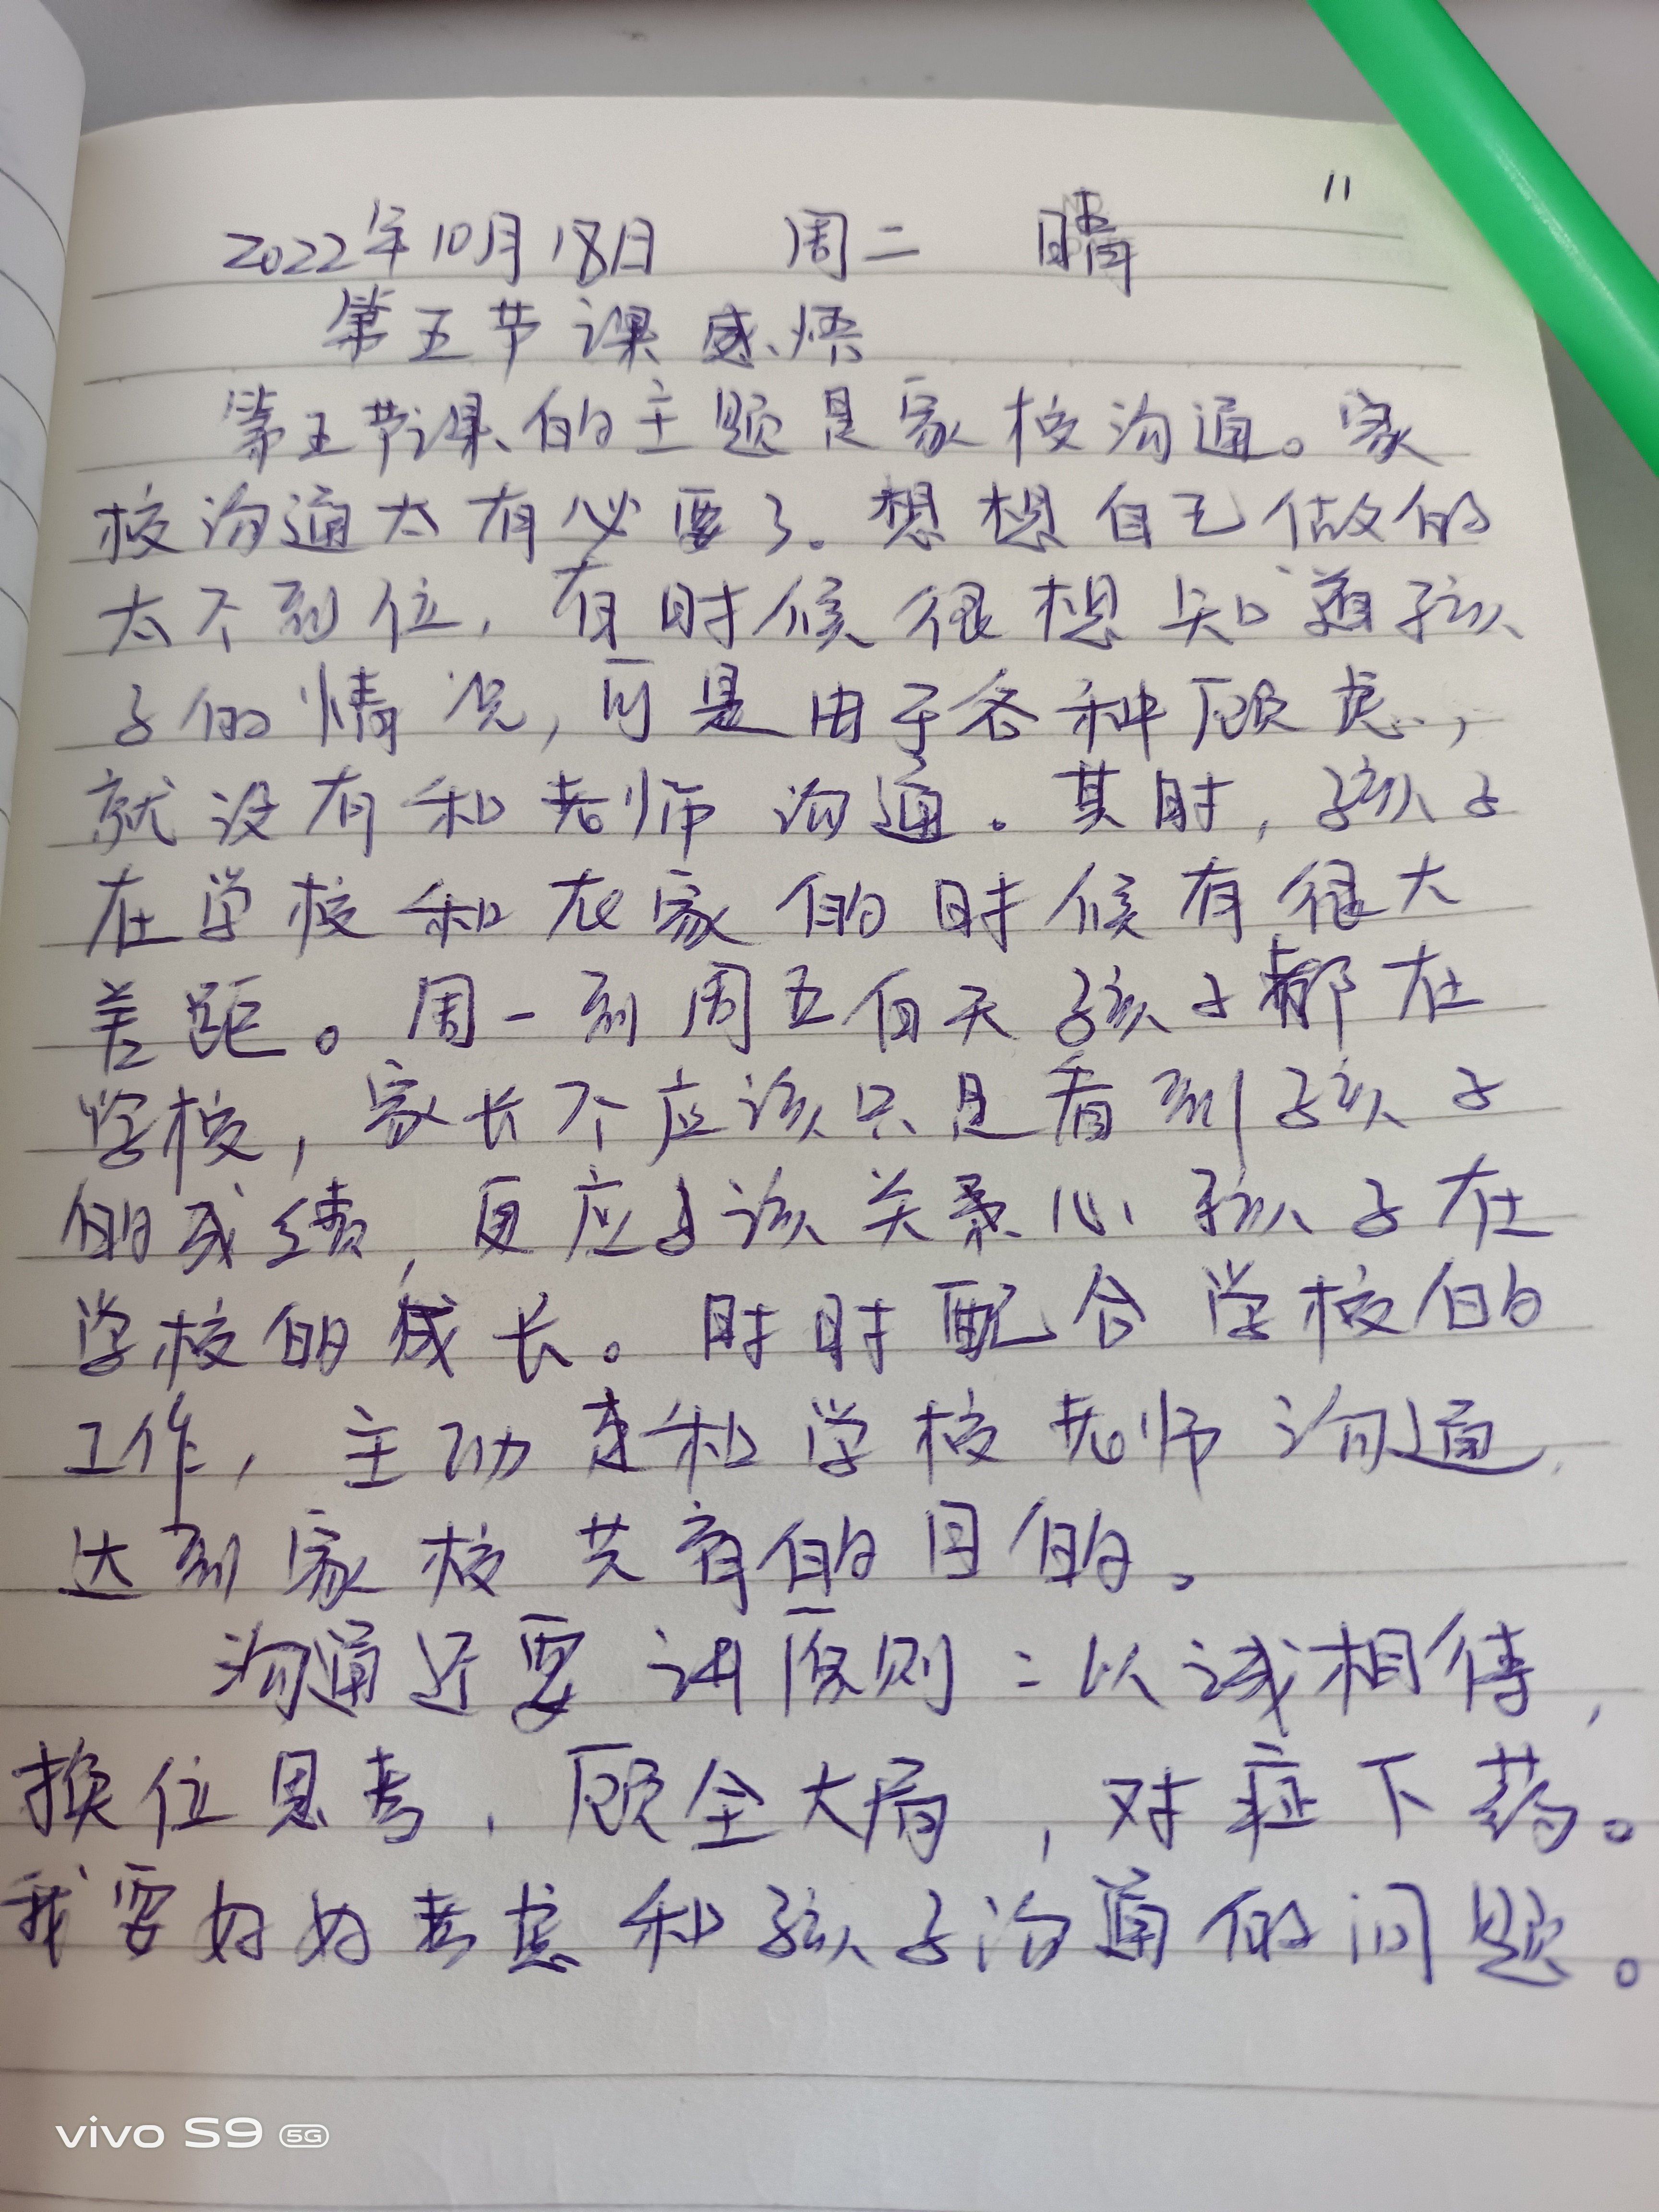 11
2022年10月18日 周二 晴
第五节课感悟
第五节课的主题是家校沟通。家
校沟通太有必要了。想想自己做的
太不到位,有时候很想知道孩
子的情况,可是由于各种顾虑,
就没有和老师沟通。其时,孩子
在学校和在家的时候有很大
差距。周一到周五白天孩子都在
学校,家长不应该只是看到孩子
的成绩,更应该关心孩子在
学校的成长。时时配合学校的
工作,主动来和学校老师沟通,
达到家校共育的目的。
沟通还要讲原则:以诚相待,
换位思考,顾全大局,对症下药。
我要好好考虑和孩子沟通的问题。
vivo S9 5G